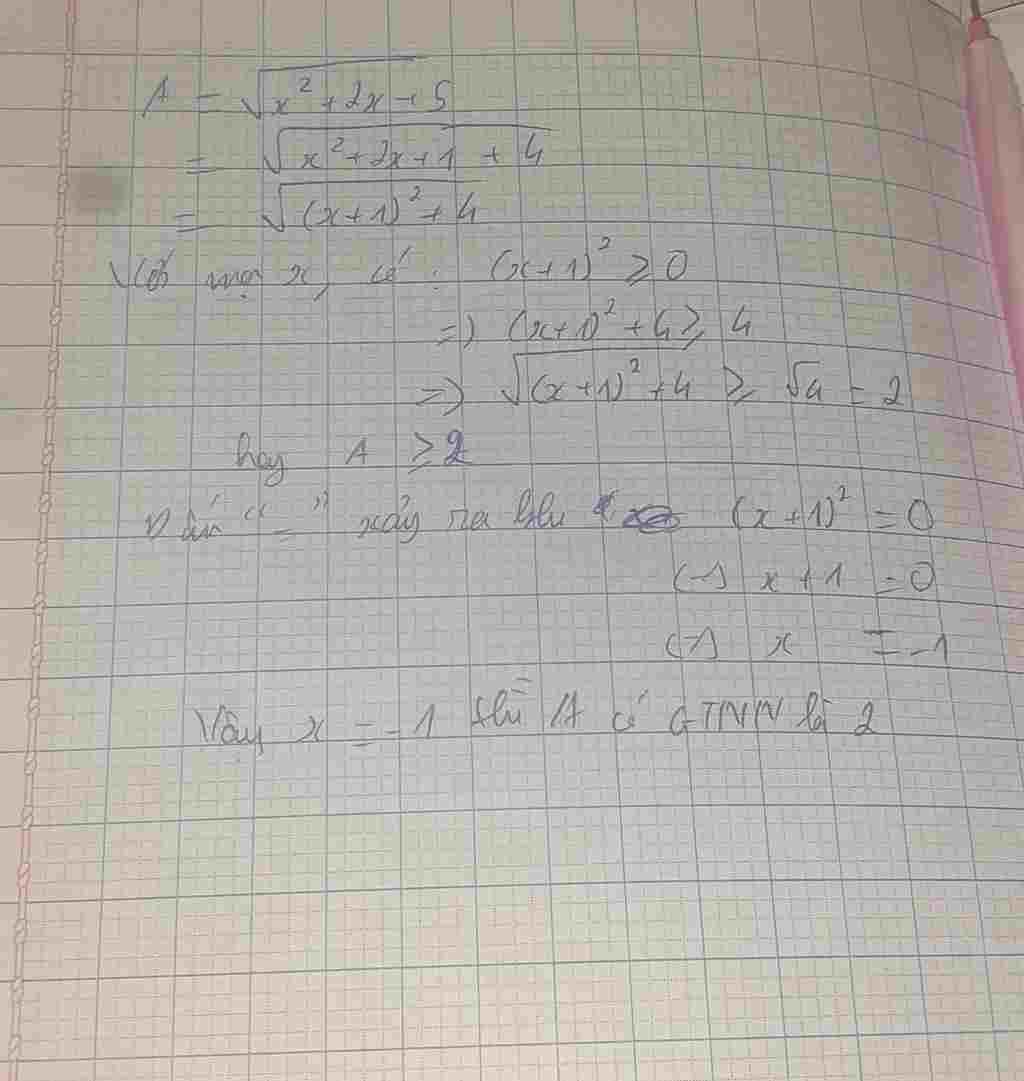 A = √(x² + 2x + 5)
= √(x² + 2x + 1 + 4)
= √((x + 1)² + 4)
Với mọi x, có : (x + 1)² ≥ 0
=> (x + 1)² + 4 ≥ 4
=> √((x + 1)² + 4) ≥ √4 = 2
hay A ≥ 2
Dấu "=" xảy ra khi (x + 1)² = 0
(=) x + 1 = 0
(=) x = -1
Vậy x = -1 thì A có GTNN là 2